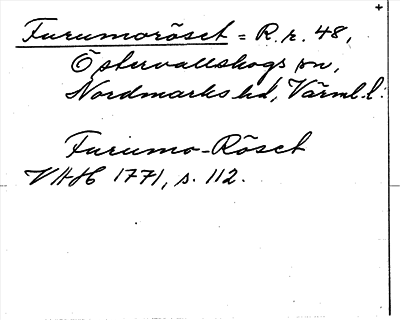 Furumoröset = R.r. 48,
Östervallskogs sn,
Nordmarks hd, Värml. l.
Furumo-Röset
VAH 1771, s. 112.